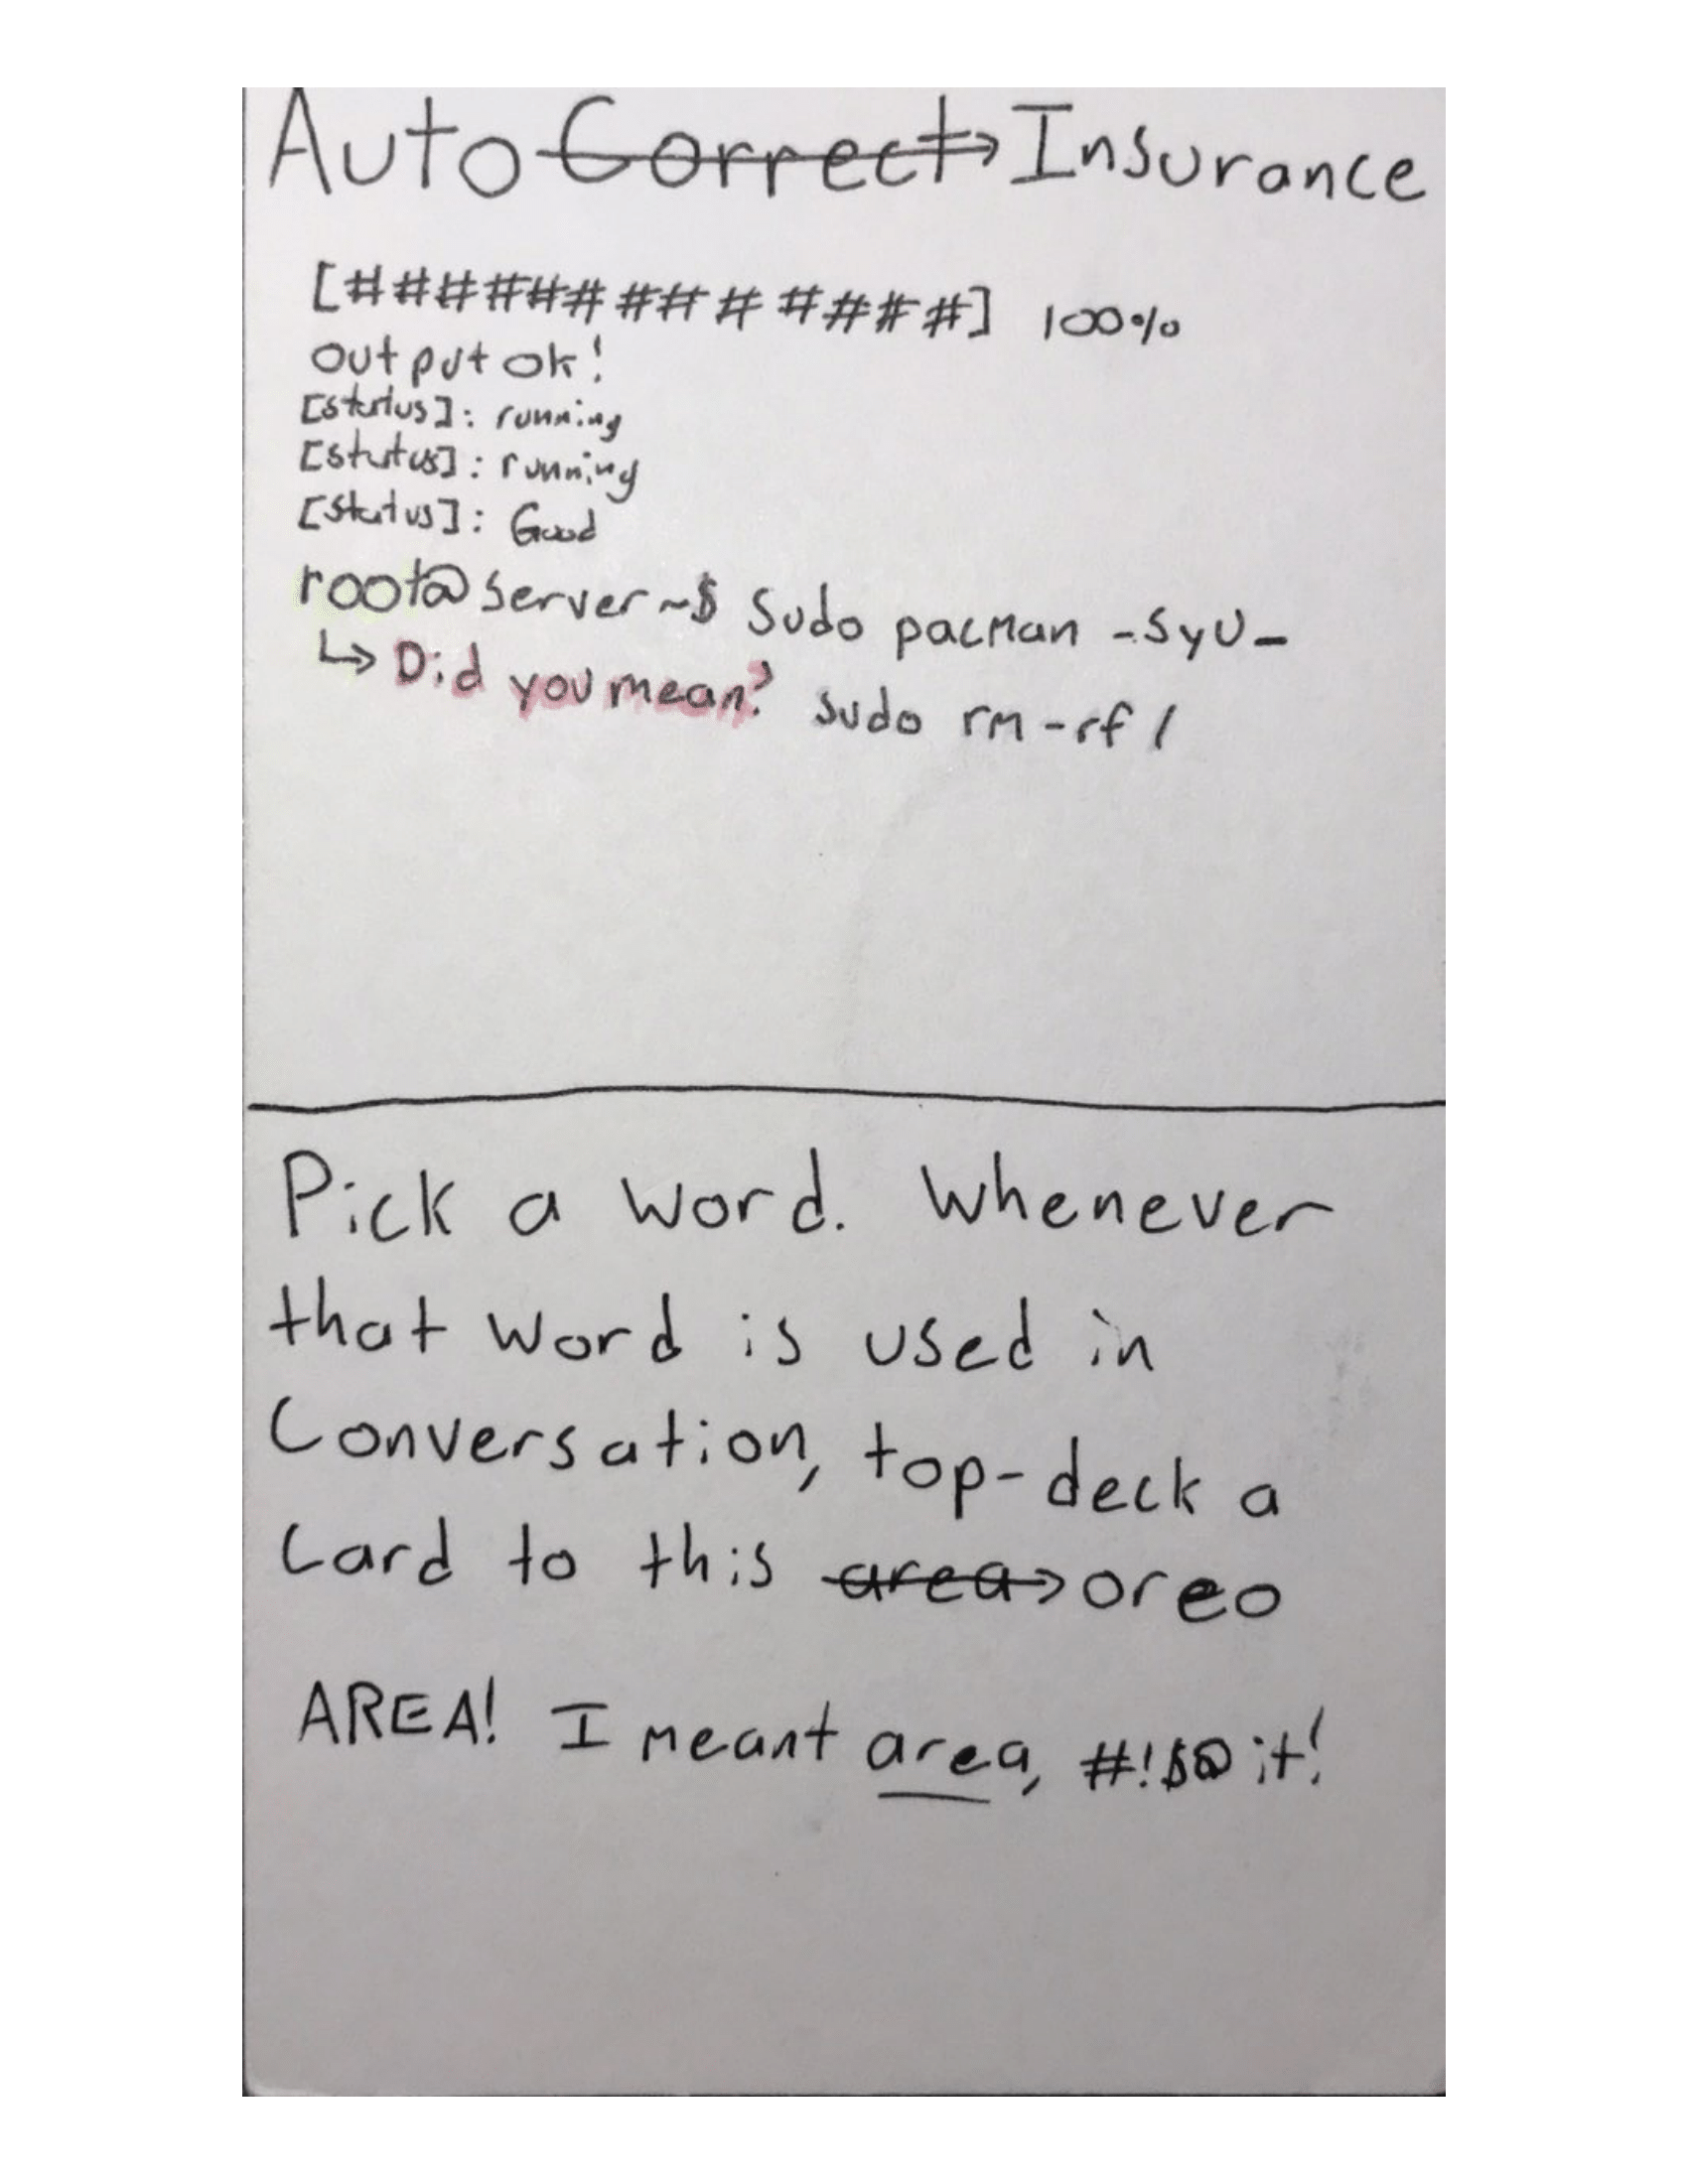 Auto Correct→ Insurance
[#############] 100%
output ok!
[status]: running
[status]: running
[status]: Good
root@server~$ sudo pacman -SyU_
↳ Did you mean? sudo rm -rf /
Pick a word. Whenever
that word is used in
Conversation, top-deck a
Card to this area→ oreo
AREA! I meant area, #!$@ it!